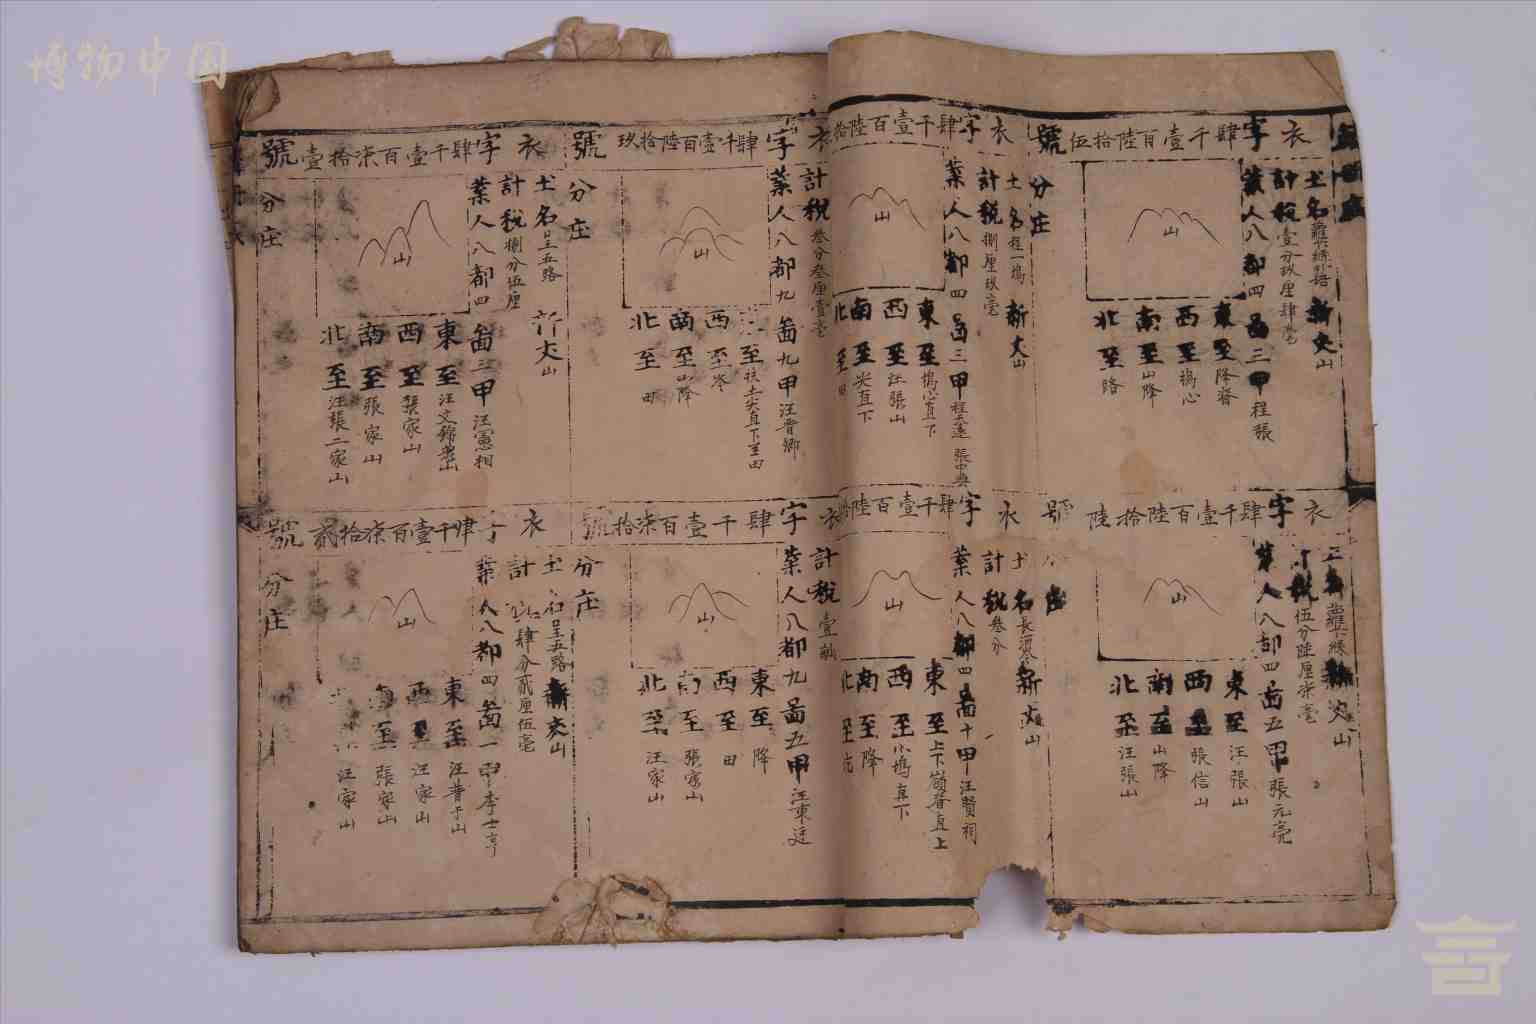 博物中国
衣字肆千壹百陸拾伍號
土名 新丈山
計稅壹分玖厘肆毫
業人八都四啚三甲程張
東至降脊
西至塢心
南至山降
北至路
分庄
衣字肆千壹百陸拾陸號
新丈山
稅伍分陸厘柒毫
業人八都四啚五甲張元亮
東至汪張山
西至張信山
南至山降
北至汪張山
庄
衣字肆千壹百陸拾
土名程一塢 新丈山
計稅捌厘玖毫
業人八都四啚三甲程 張
東至塢心直下
西至汪張山
南至尖直下
北至田
衣字肆千壹百陸拾
土名長 新丈山
計稅叁分
業人八都四啚十甲汪賢祠
東至上下嶺脊直上
西至小塢直下
南至降
北至坑
衣字肆千壹百陸拾玖號
計稅叁分叁厘壹毫
業人八都九啚九甲汪晋卿
至 尖直下至田
西至岺
南至山降
北至田
分庄
衣字肆千壹百柒拾號
計稅壹畝
業人八都九啚五甲汪東廷
東至降
西至田
南至張家山
北至汪家山
分庄
衣字肆千壹百柒拾壹號
土名呈五路 新丈山
計稅捌分伍厘
業人八都四啚三甲汪憲相
東至汪文錦 山
西至張家山
南至張家山
北至汪張二家山
分庄
衣字肆千壹百柒拾貳號
土名呈五路 新丈山
計 肆分貳厘伍毫
業人八都四啚一甲李士亨
東至汪 于山
西至汪家山
南至張家山
汪家山
分庄
山
山
山
山
山
山
山
山